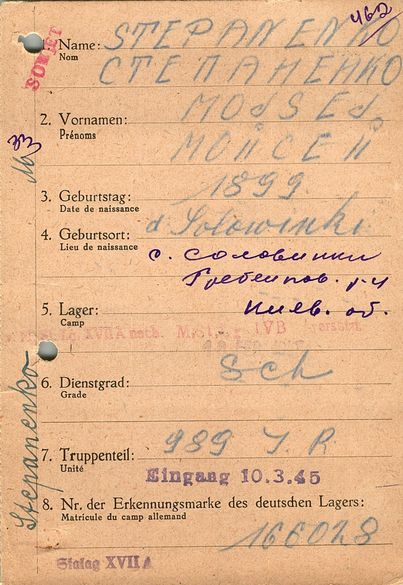 462
SOWJET
1. Name: STEPANENKO
Nom
СТЕПАНЕНКО
2. Vornamen: MOJSEJ
Prénoms
МОЙСЕЙ
33
3. Geburtstag: 1899
Date de naissance
4. Geburtsort: d Solowinki
Lieu de naissance
с. Соловинки
р-н
5. Lager: Киев. об.
Camp
XVII A nach M.Sta IVB versetzt
6. Dienstgrad: Sch
Grade
7. Truppenteil: 989 J. R
Unité
Eingang 10.3.45
8. Nr. der Erkennungsmarke des deutschen Lagers:
Matricule du camp allemand
166028
Stalag XVII A
Stepanenko